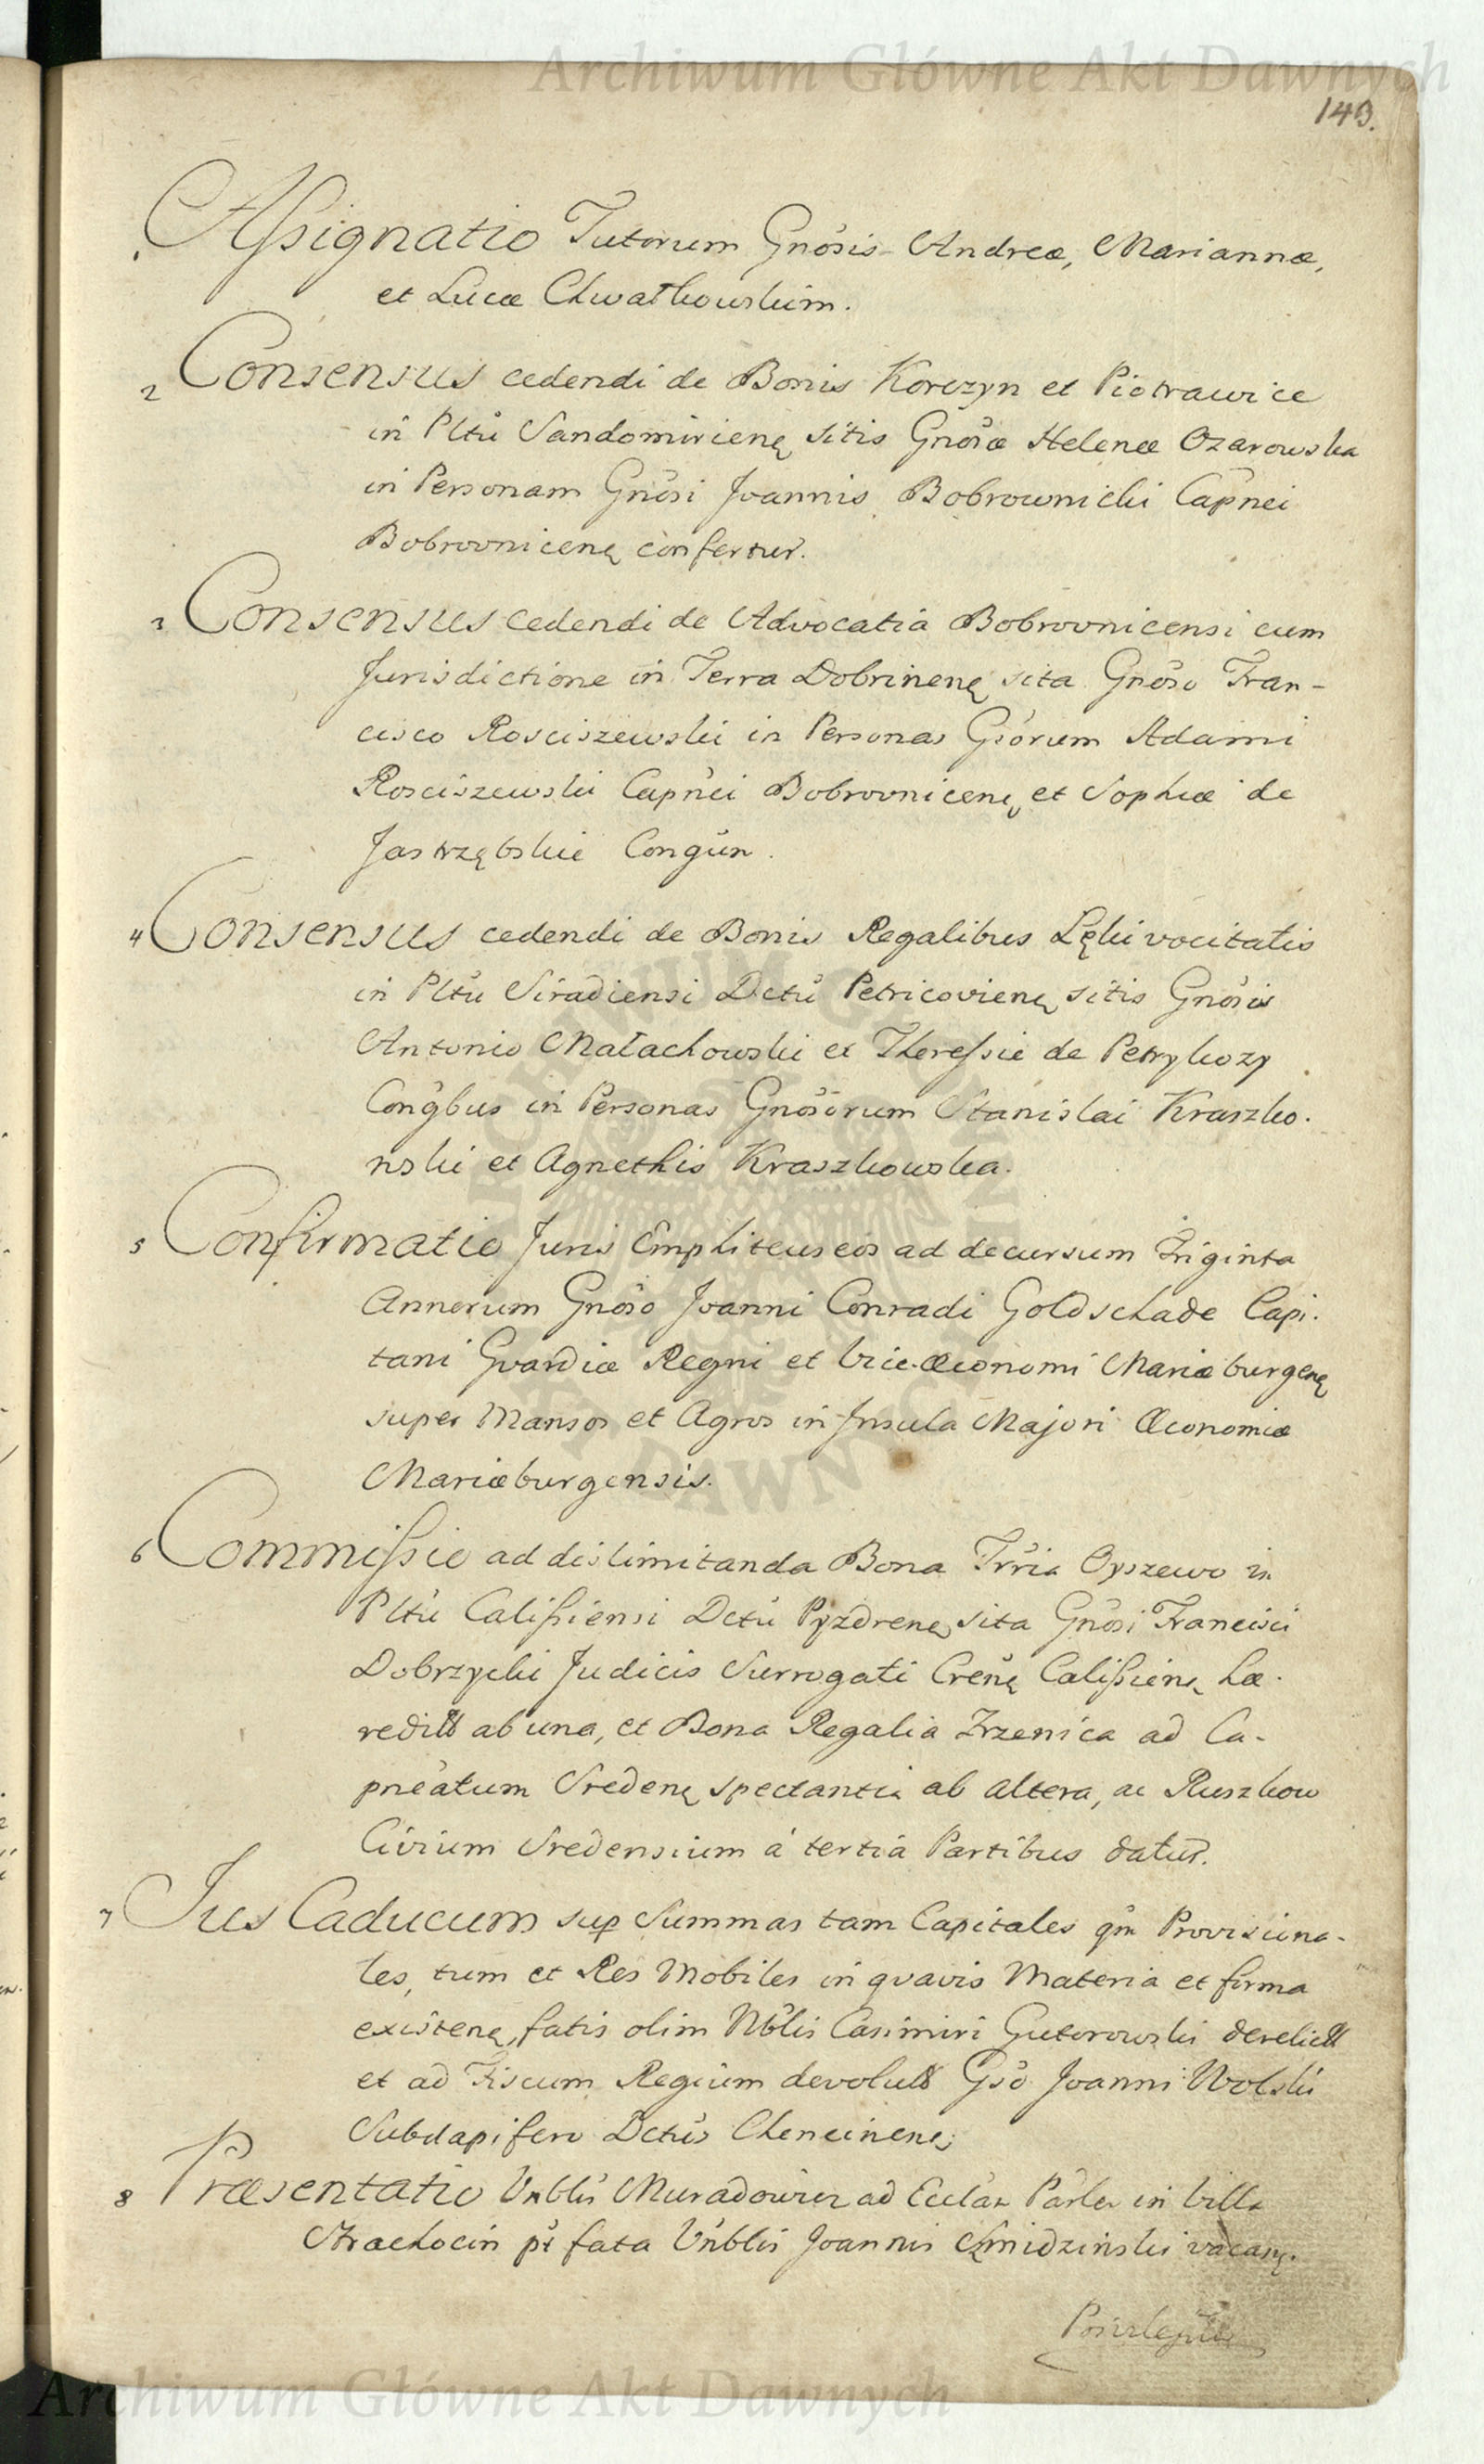 Archiwum Główne Akt Dawnych
143.
Assignatio Tutorum Gnosis Andreæ, Mariannæ,
et Lucæ Chwałkowskim.
2 Consensus cedendi de Bonis Korczyn et Piotrawice
in Pltū Sandomirienę sitis Gnosæ Helenæ Ozarowska
in Personam Gnosi Joannis Bobrownicki Capnei
Bobrovnicenę confertur.
3 Consensus cedendi de Advocatia Bobrovnicensi cum
Jurisdictione in Terra Dobrinenę sita Gnoso Fran-
cisco Rosciszewski in Personas Gsorum Adami
Rosciszewski Capnei Bobrovnicenę et Sophiæ de
Jastrzębskie Congūn.
4 Consensus cedendi de Bonis Regalibus Lęki vocitatis
in Pltū Siradiensi Dctū Petricovienę sitis Gnosis
Antonio Małachowski et Theressie de Petrykozy
Congbus in Personas Gnosorum Stanislai Kraszko-
wski et Agnethis Kraszkowska.
5 Confirmatio Juris Emphiteuseos ad decursum Triginta
Annorum Gnoso Joanni Conradi Goldschade Capi-
tani Gvardiæ Regni et Vice-Œconomi Mariæburgenę
super Mansos et Agros in Insula Majori Œconomiæ
Mariæburgensis.
6 Commissio ad dislimitanda Bona Trria Opszewo in
Pltū Calissiensi Dctū Pyzdrenę sita Gnosi Francisci
Dobrzycki Judicis Surrogati Crenę Calissienę hæ-
reditt ab una, et Bona Regalia Trzenica ad Ca-
pneatum Sredenę spectantia ab altera, ac Ruszkow
Civium Sredensium á tertia Partibus datur.
7 Jus Caducum sup Summas tam Capitales qm Provisiona-
les, tum et Res Mobiles in qvavis Materia et forma
existenę, fatis olim Nblis Casimiri Gutorowski derelictt
et ad Fiscum Regium devolutt Gso Joanni Wolski
Subdapifero Dctūs Chencinenę
8 Præsentatio Vnblis Muradowicz ad Ecclān Parlem in Villa
Strachocin pt fata Vnblis Joannis Chmidzinski vacanę.
Archiwum Główne Akt Dawnych